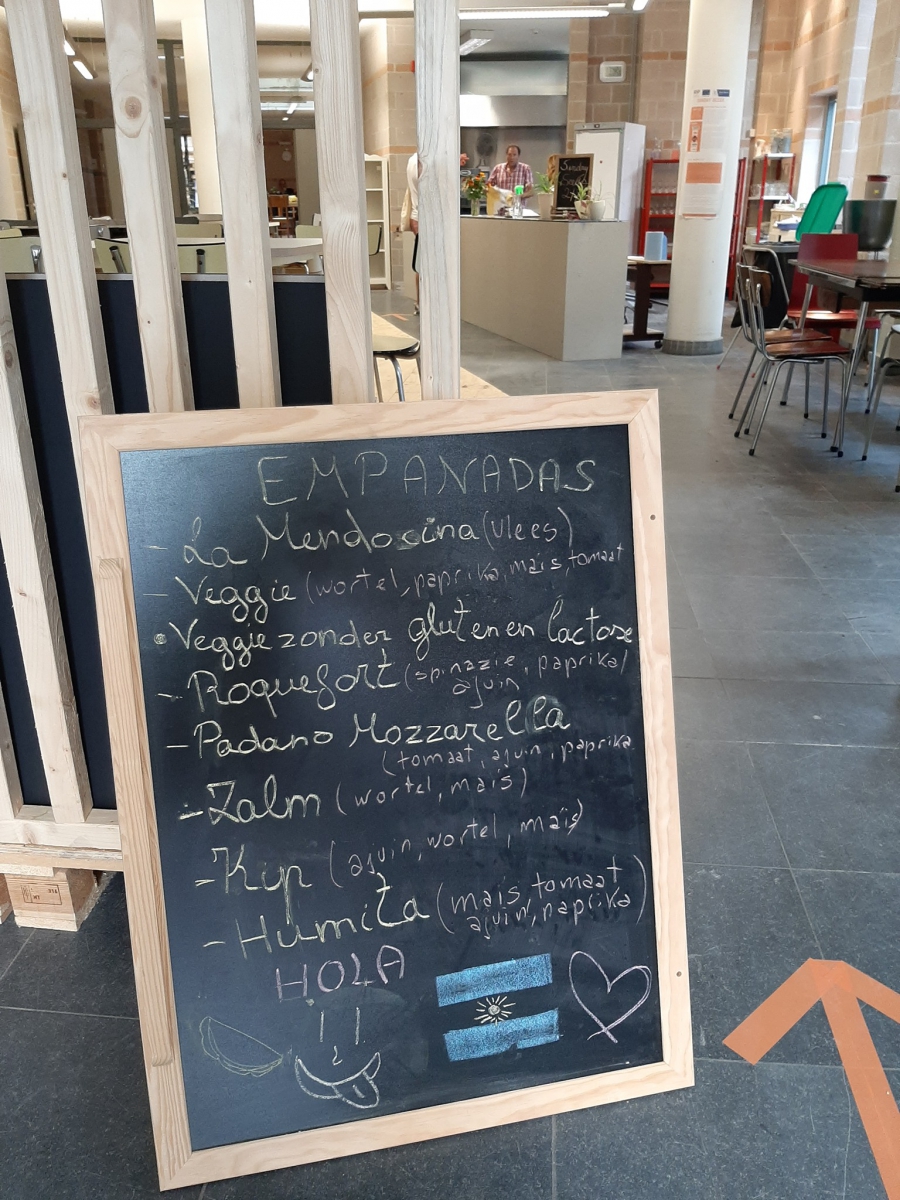 Sunday
EMPANADAS
- La Mendocina (vlees)
- Veggie (wortel, paprika, maïs, tomaat
• Veggie zonder gluten en lactose
- Roquefort (spinazie, paprika)
ajuin
- Padano Mozzarella
(tomaat, ajuin, paprika
- Zalm (wortel, maïs)
- Kip (ajuin, wortel, maïs)
- Humita (maïs, tomaat
ajuin, paprika)
HOLA